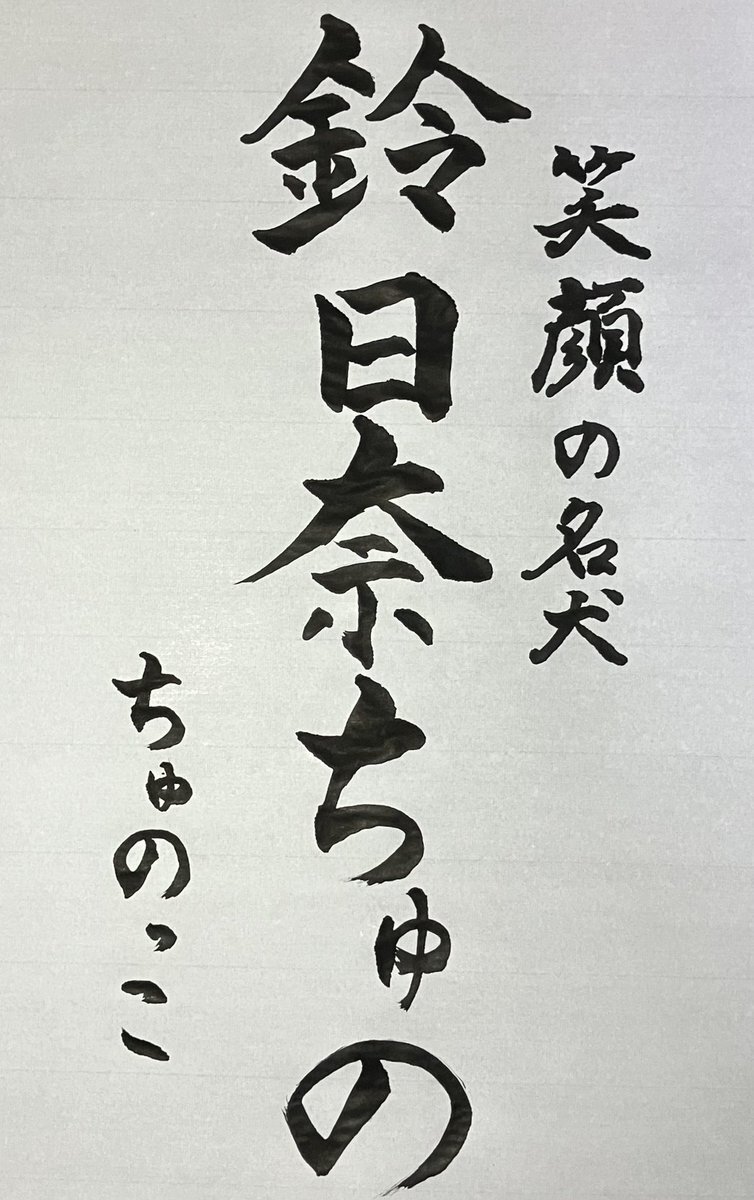 笑顔の名犬
鈴日奈ちゅの
ちゅのっこ